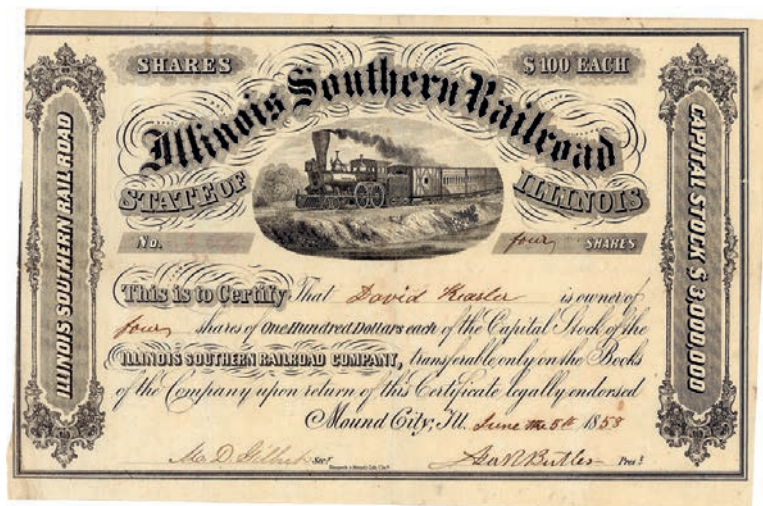 SHARES
$100 EACH
Illinois Southern Railroad
STATE OF
ILLINOIS
No.
four SHARES
ILLINOIS SOUTHERN RAILROAD
CAPITAL STOCK $3,000,000
This is to Certify That David Keasler is owner of
four shares of One Hundred Dollars each of the Capital Stock of the
ILLINOIS SOUTHERN RAILROAD COMPANY, transferable only on the Books
of the Company upon return of this Certificate legally endorsed
Mound City, Ill. June the 5th 1858
M. D. Gilbert Sec.y
Butler Pres.t